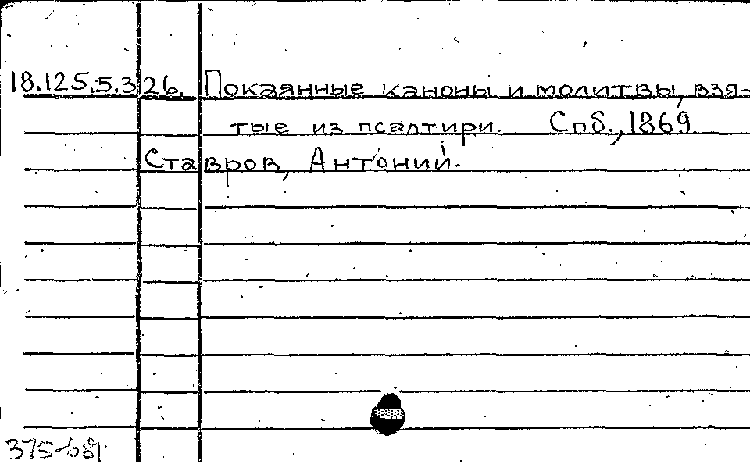 18.125.5.326. Покаянные каноны и молитвы, взя-
тые из псалтири. Спб., 1869
Ставров, Антоний.